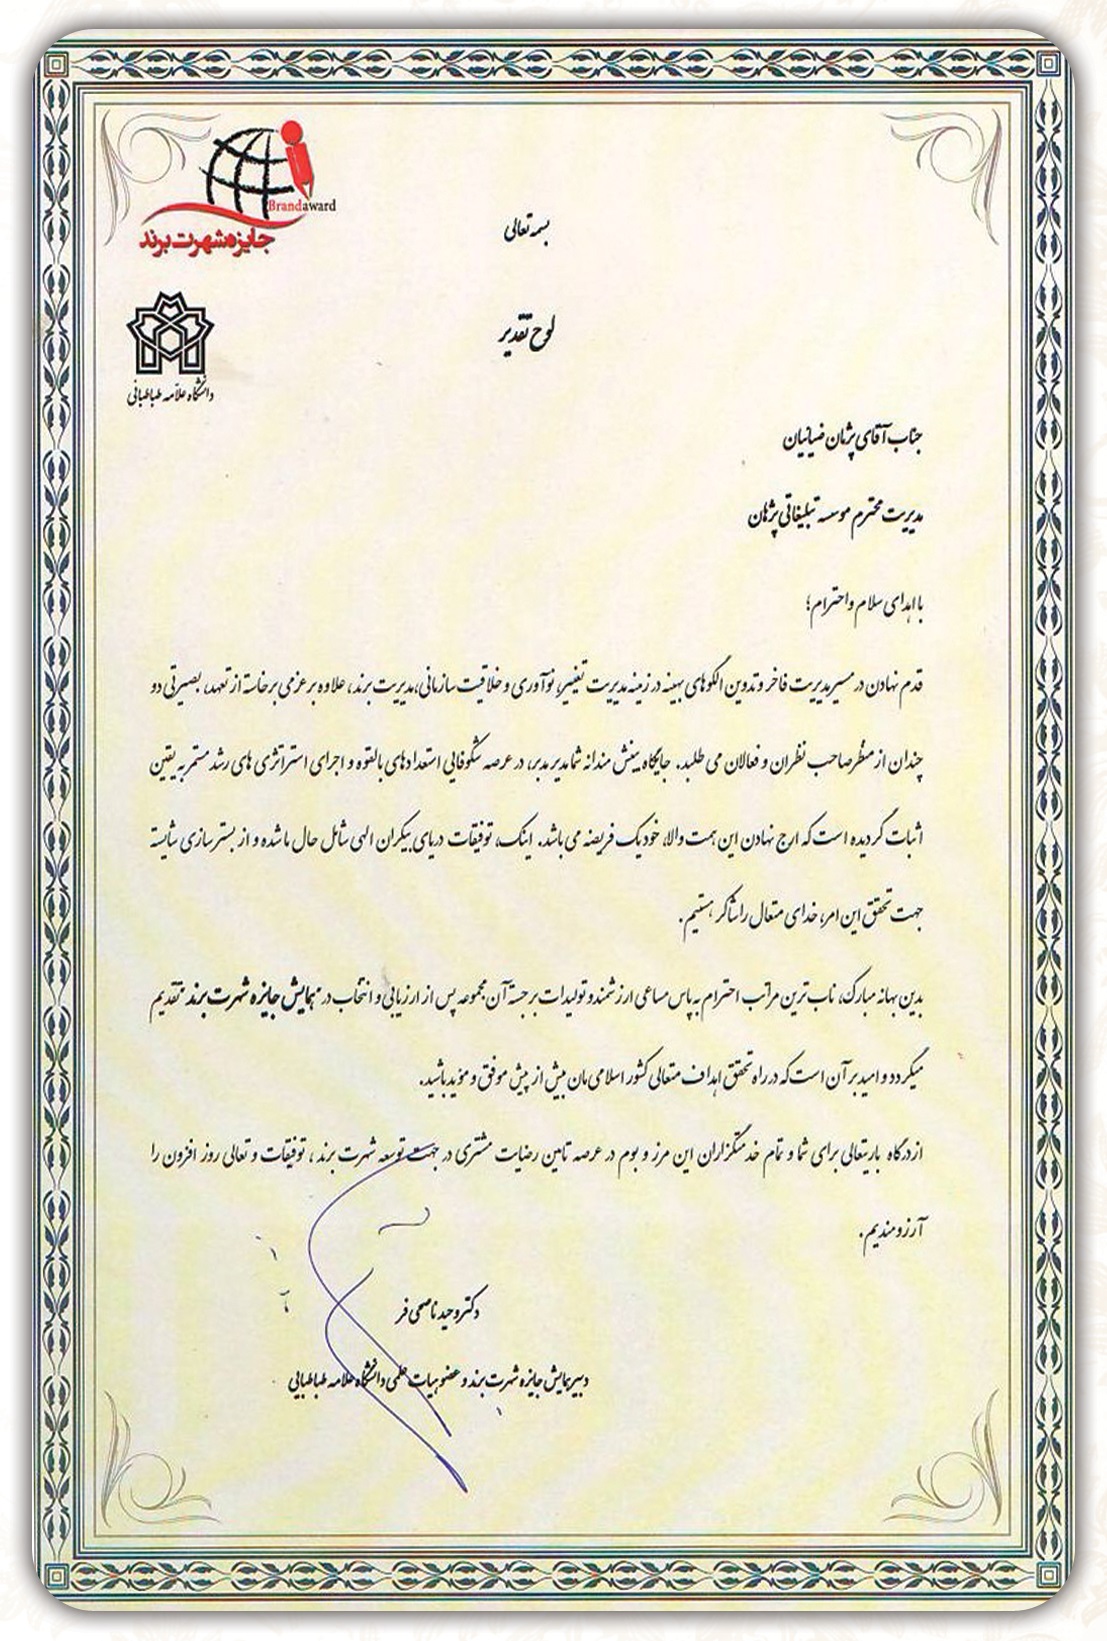 Brandaward
جایزه شهرت برند
دانشگاه علامه طباطبائی
بسمه تعالی
لوح تقدیر
جناب آقای پژمان ضیائیان
مدیریت محترم موسسه تبلیغاتی پژمان
با اهدای سلام و احترام؛
قدم نهادن در مسیر مدیریت فاخر و تدوین الگوهای بهینه در زمینه مدیریت تغییر، نوآوری و خلاقیت سازمانی، مدیریت برند، علاوه بر عزمی برخاسته از تعهد، بصیرتی دو
چندان از منظر صاحب نظران و فعالان می طلبد. جایگاه بینش مندانه شما مدیر مدبر، در عرصه شکوفائی استعدادهای بالقوه و اجرای استراتژی های رشد مستمر به یقین
اثبات گردیده است که ارج نهادن این همت والا، خود یک فریضه می باشد. اینک، توفیقات دریای بیکران الهی شامل حال ما شده و از بستر سازی شایسته
جهت تحقق این امر، خدای متعال را شاکر هستیم.
بدین بهانه مبارک، ناب ترین مراتب احترام به پاس مساعی ارزشمند و تولیدات برجسته آن مجموعه پس از ارزیابی و انتخاب در همایش جایزه شهرت برند تقدیم
میگردد و امید بر آن است که در راه تحقق اهداف متعالی کشور اسلامی مان بیش از پیش موفق و موید باشید.
از درگاه باریتعالی برای شما و تمام خدمتگزاران این مرز و بوم در عرصه تامین رضایت مشتری در جهت توسعه شهرت برند، توفیقات و تعالی روز افزون را
آرزومندیم.
دکتر وحید ناصحی فر
دبیر همایش جایزه شهرت برند و عضو هیات علمی دانشگاه علامه طباطبایی